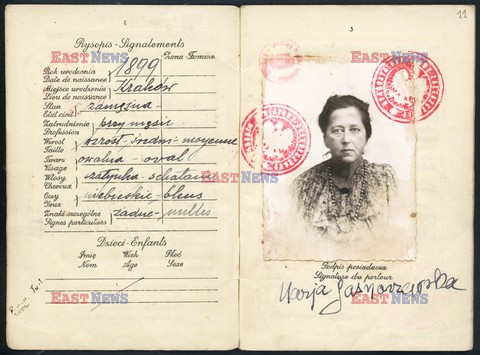 2
Rysopis-Signalements
Żona-Femme
Rok urodzenia
Date de naissance
1899
Miejsce urodzenia
Lieu de naissance
Kraków
Stan
Etat civil
zamężna -
Zatrudnienie
Profession
przy mężu -
Wzrost
Taille
wzrost średni - moyenne
Twarz
Visage
owalna - oval
Włosy
Cheveux
szatynka - chatain
Oczy
Yeux
niebieskie - bleus
Znaki szczególne
Signes particuliers
żadne - nulles
Dzieci-Enfants
Imię Wiek Płeć
Nom Age Sexe
3
11
Podpis posiadacza
Signature du porteur
Marja Jasnorzewska
EAST NEWS
EAST NEWS
EAST NEWS
EAST NEWS
EAST NEWS
EAST NEWS